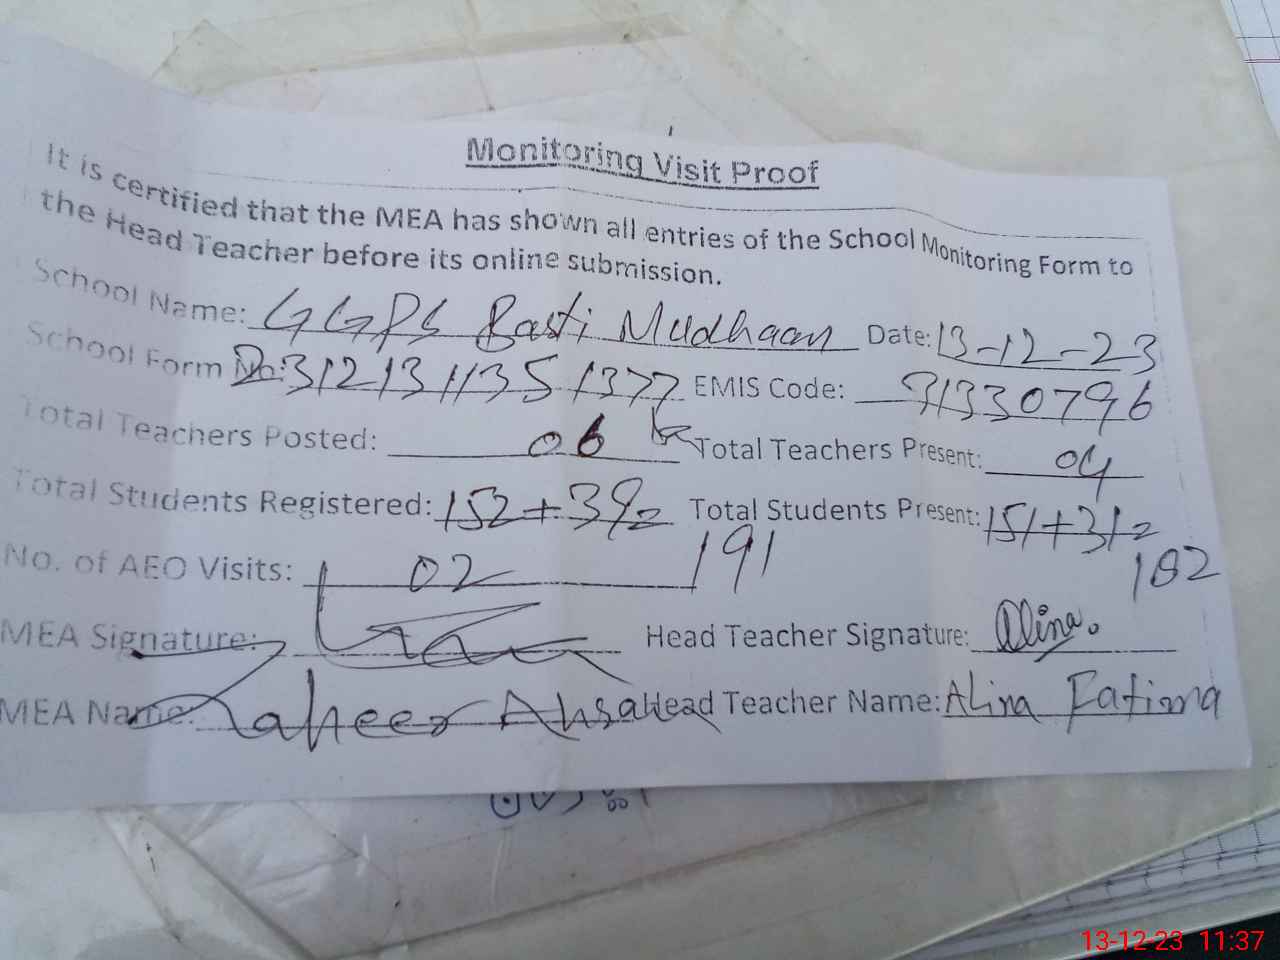 Monitoring Visit Proof
It is certified that the MEA has shown all entries of the School Monitoring Form to
the Head Teacher before its online submission.
School Name: GGPS Basti Mudhaan Date: 13-12-23
School Form No: 3121311351377 EMIS Code: 31330796
Total Teachers Posted: 06 Total Teachers Present: 04
Total Students Registered: 152+39= Total Students Present: 151+31=
191 182
No. of AEO Visits: 02
MEA Signature: Head Teacher Signature: Alina.
MEA Name: Zaheer Ahsan Head Teacher Name: Alina Fatima
13-12-23 11:37